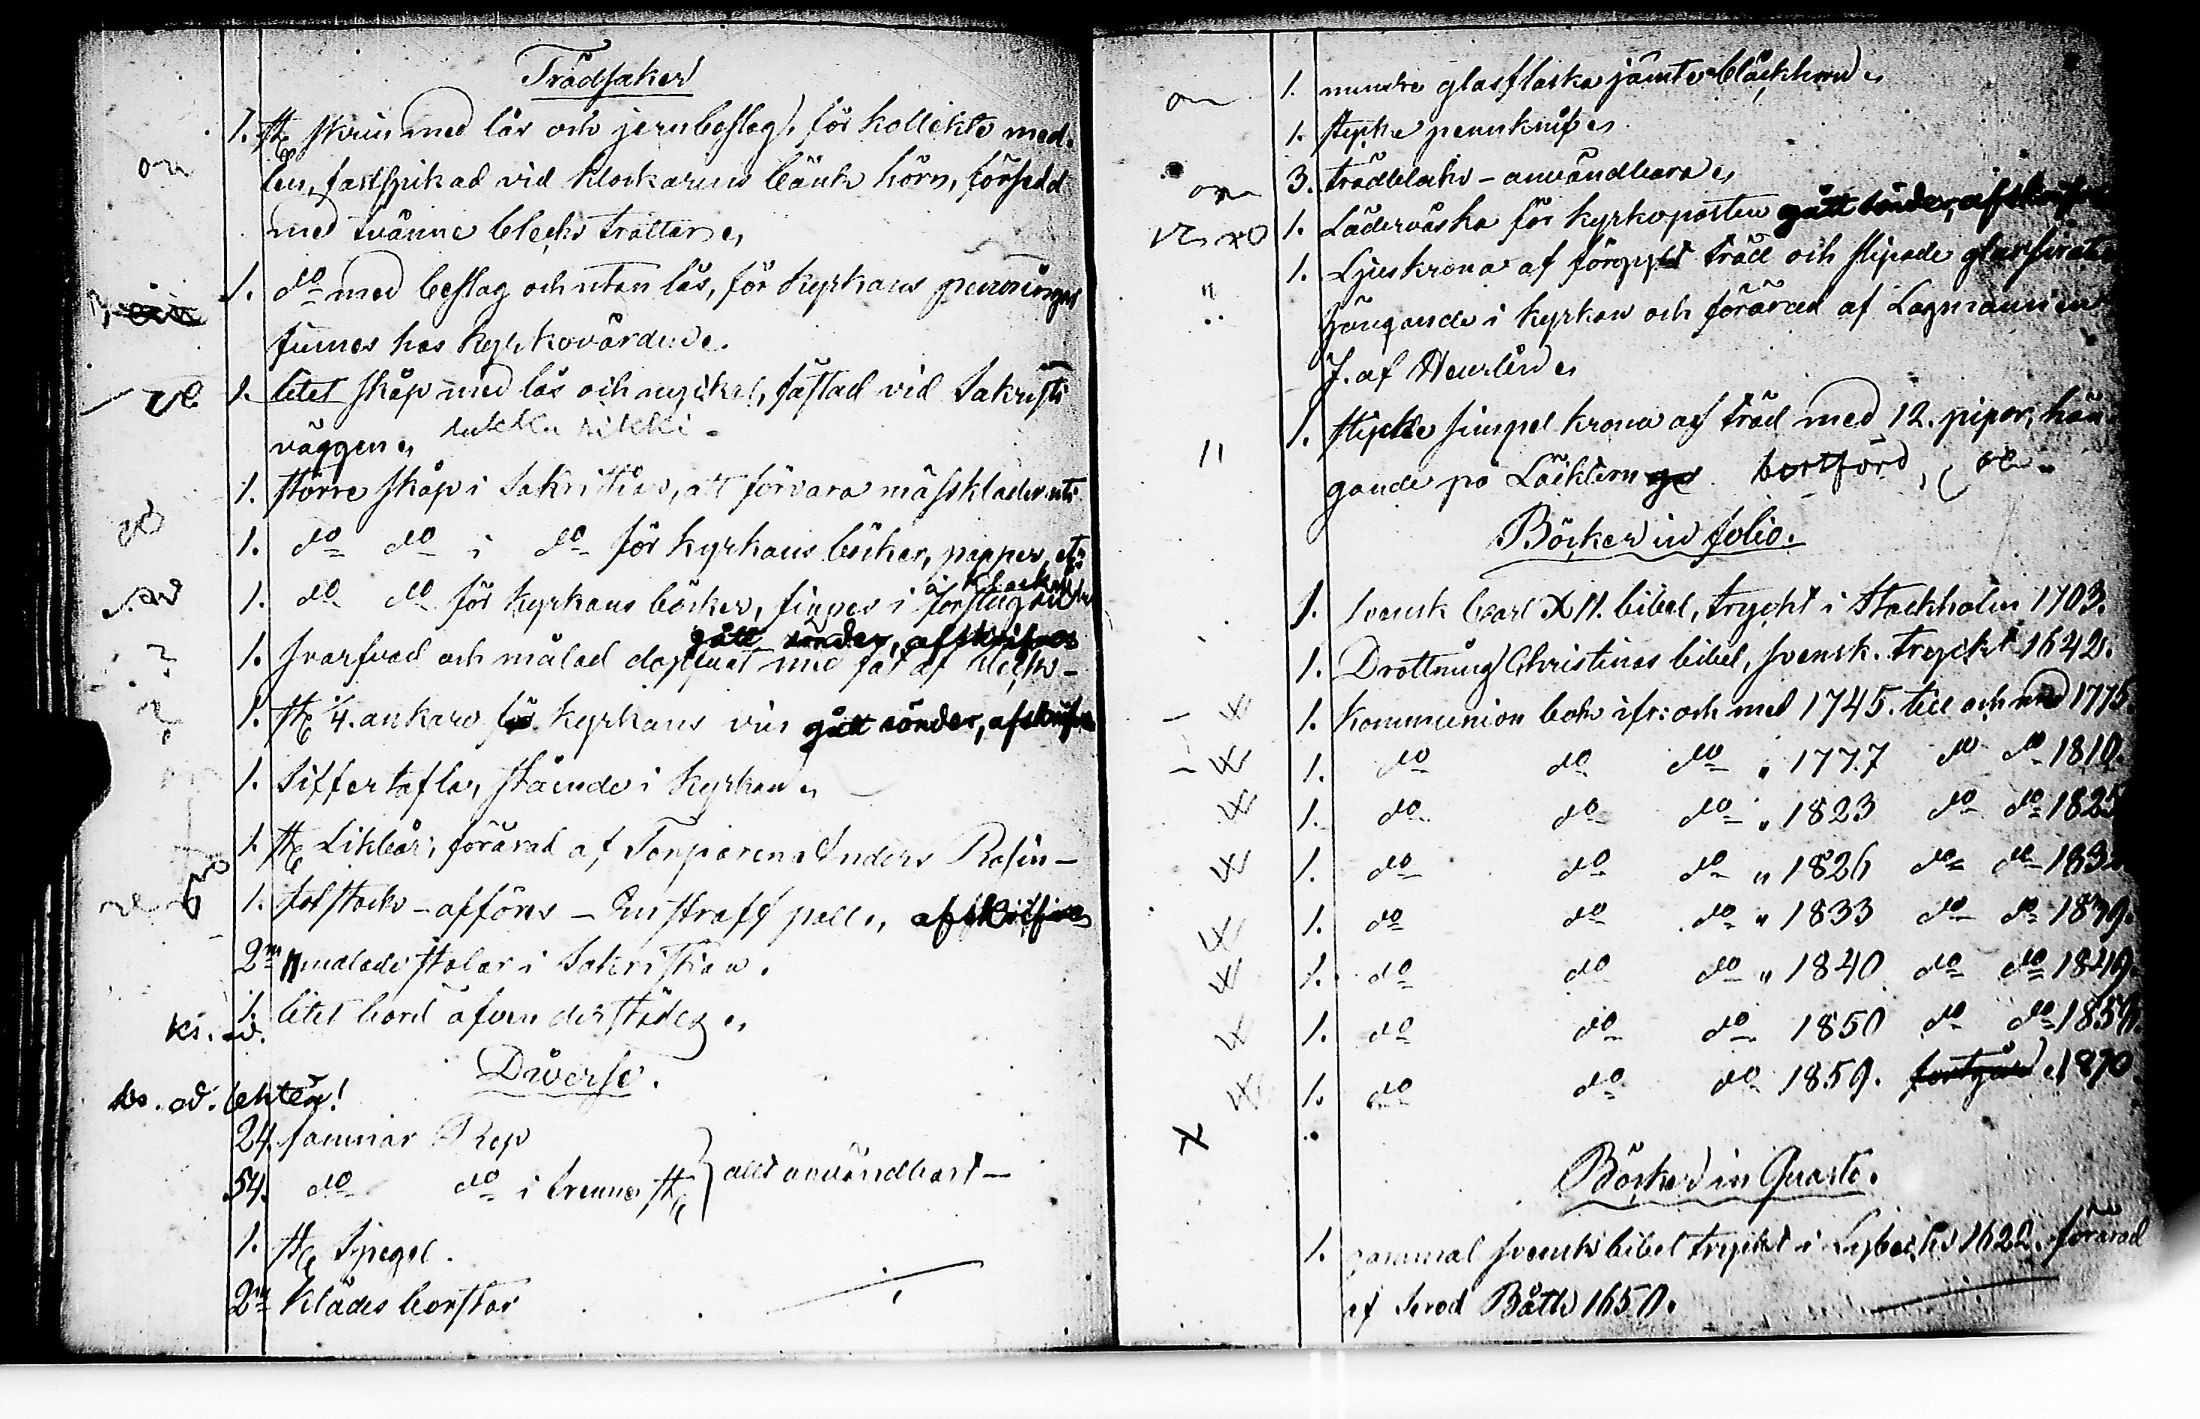 Trädsaker
on
1. st. skrin med lås och jernbeslag, för kollekte med-
len, fastspikad vid klockarens bänk hörn, försedd
med tvänne bleckstrattar
1. do med beslag och utan lås, för kyrkans penningar
finnes hos kyrkovärden.
1. litet skåp med lås och nyckel, fästad vid Sakristi
väggen
1. större skåp i Sakristian, att förvara mässkläder uti
1. do do i do för kyrkans böcker, papper, etc
1. do do för kyrkans böcker, finnes i
gått sönder, afskrifves
1. svarfvad och målad dopfunt med fat af bleck-
1. st. 1/4. ankare kyrkans vin gått sönder, afskrifves
1. Siffertafla, stående i kyrkan
1. st. Likbår, förärad af Torparen Anders Rosin-
1. stock - afföres - En straff pall, afskrifves
2ne målade stolar i Sakristian.
1. litet bord äfven derstädes
ks. od.
Diverse.
ks. od. lehteä!
24. famnar Rep
54. do do i trenne st. allt användbart -
1. st. Spegel.
2ne Klädes borstar
on
1. mindre glasflaska jämte bläckhorn
1. stycke pennknif
3. trädblocks - användbara
1. Läderväska för kyrkoposten gått sönder, afskrifves
1. Ljuskrona af förgyld träd och slipade glas
hängande i kyrkan och förärad af Lagmannen
J. af Heurlin
1. stycke simpel krona af träd med 12. pipor, hän-
gande på Läcktern bortförd,
Böcker in folio.
1. svensk Carl XII. bibel, tryckt i Stockholm 1703.
1. Drottning Christinas bibel, svensk. tryckt 1642.
1. Kommunion bok ifr: och med 1745. till och med 1775.
1. do do do " 1777 do do 1810.
1. do do do " 1823 do do 1825
1. do do do " 1826 do do
1. do do do " 1833 do do 1839.
1. do do do " 1840 do do 1849.
1. do do do 1850 do do 1858.
1. do do do 1859. fortgår 1890
Böcker in Quarto.
1. gammal svensk bibel tryckt i Lybeck 1622. förärad
af Båth 1650.